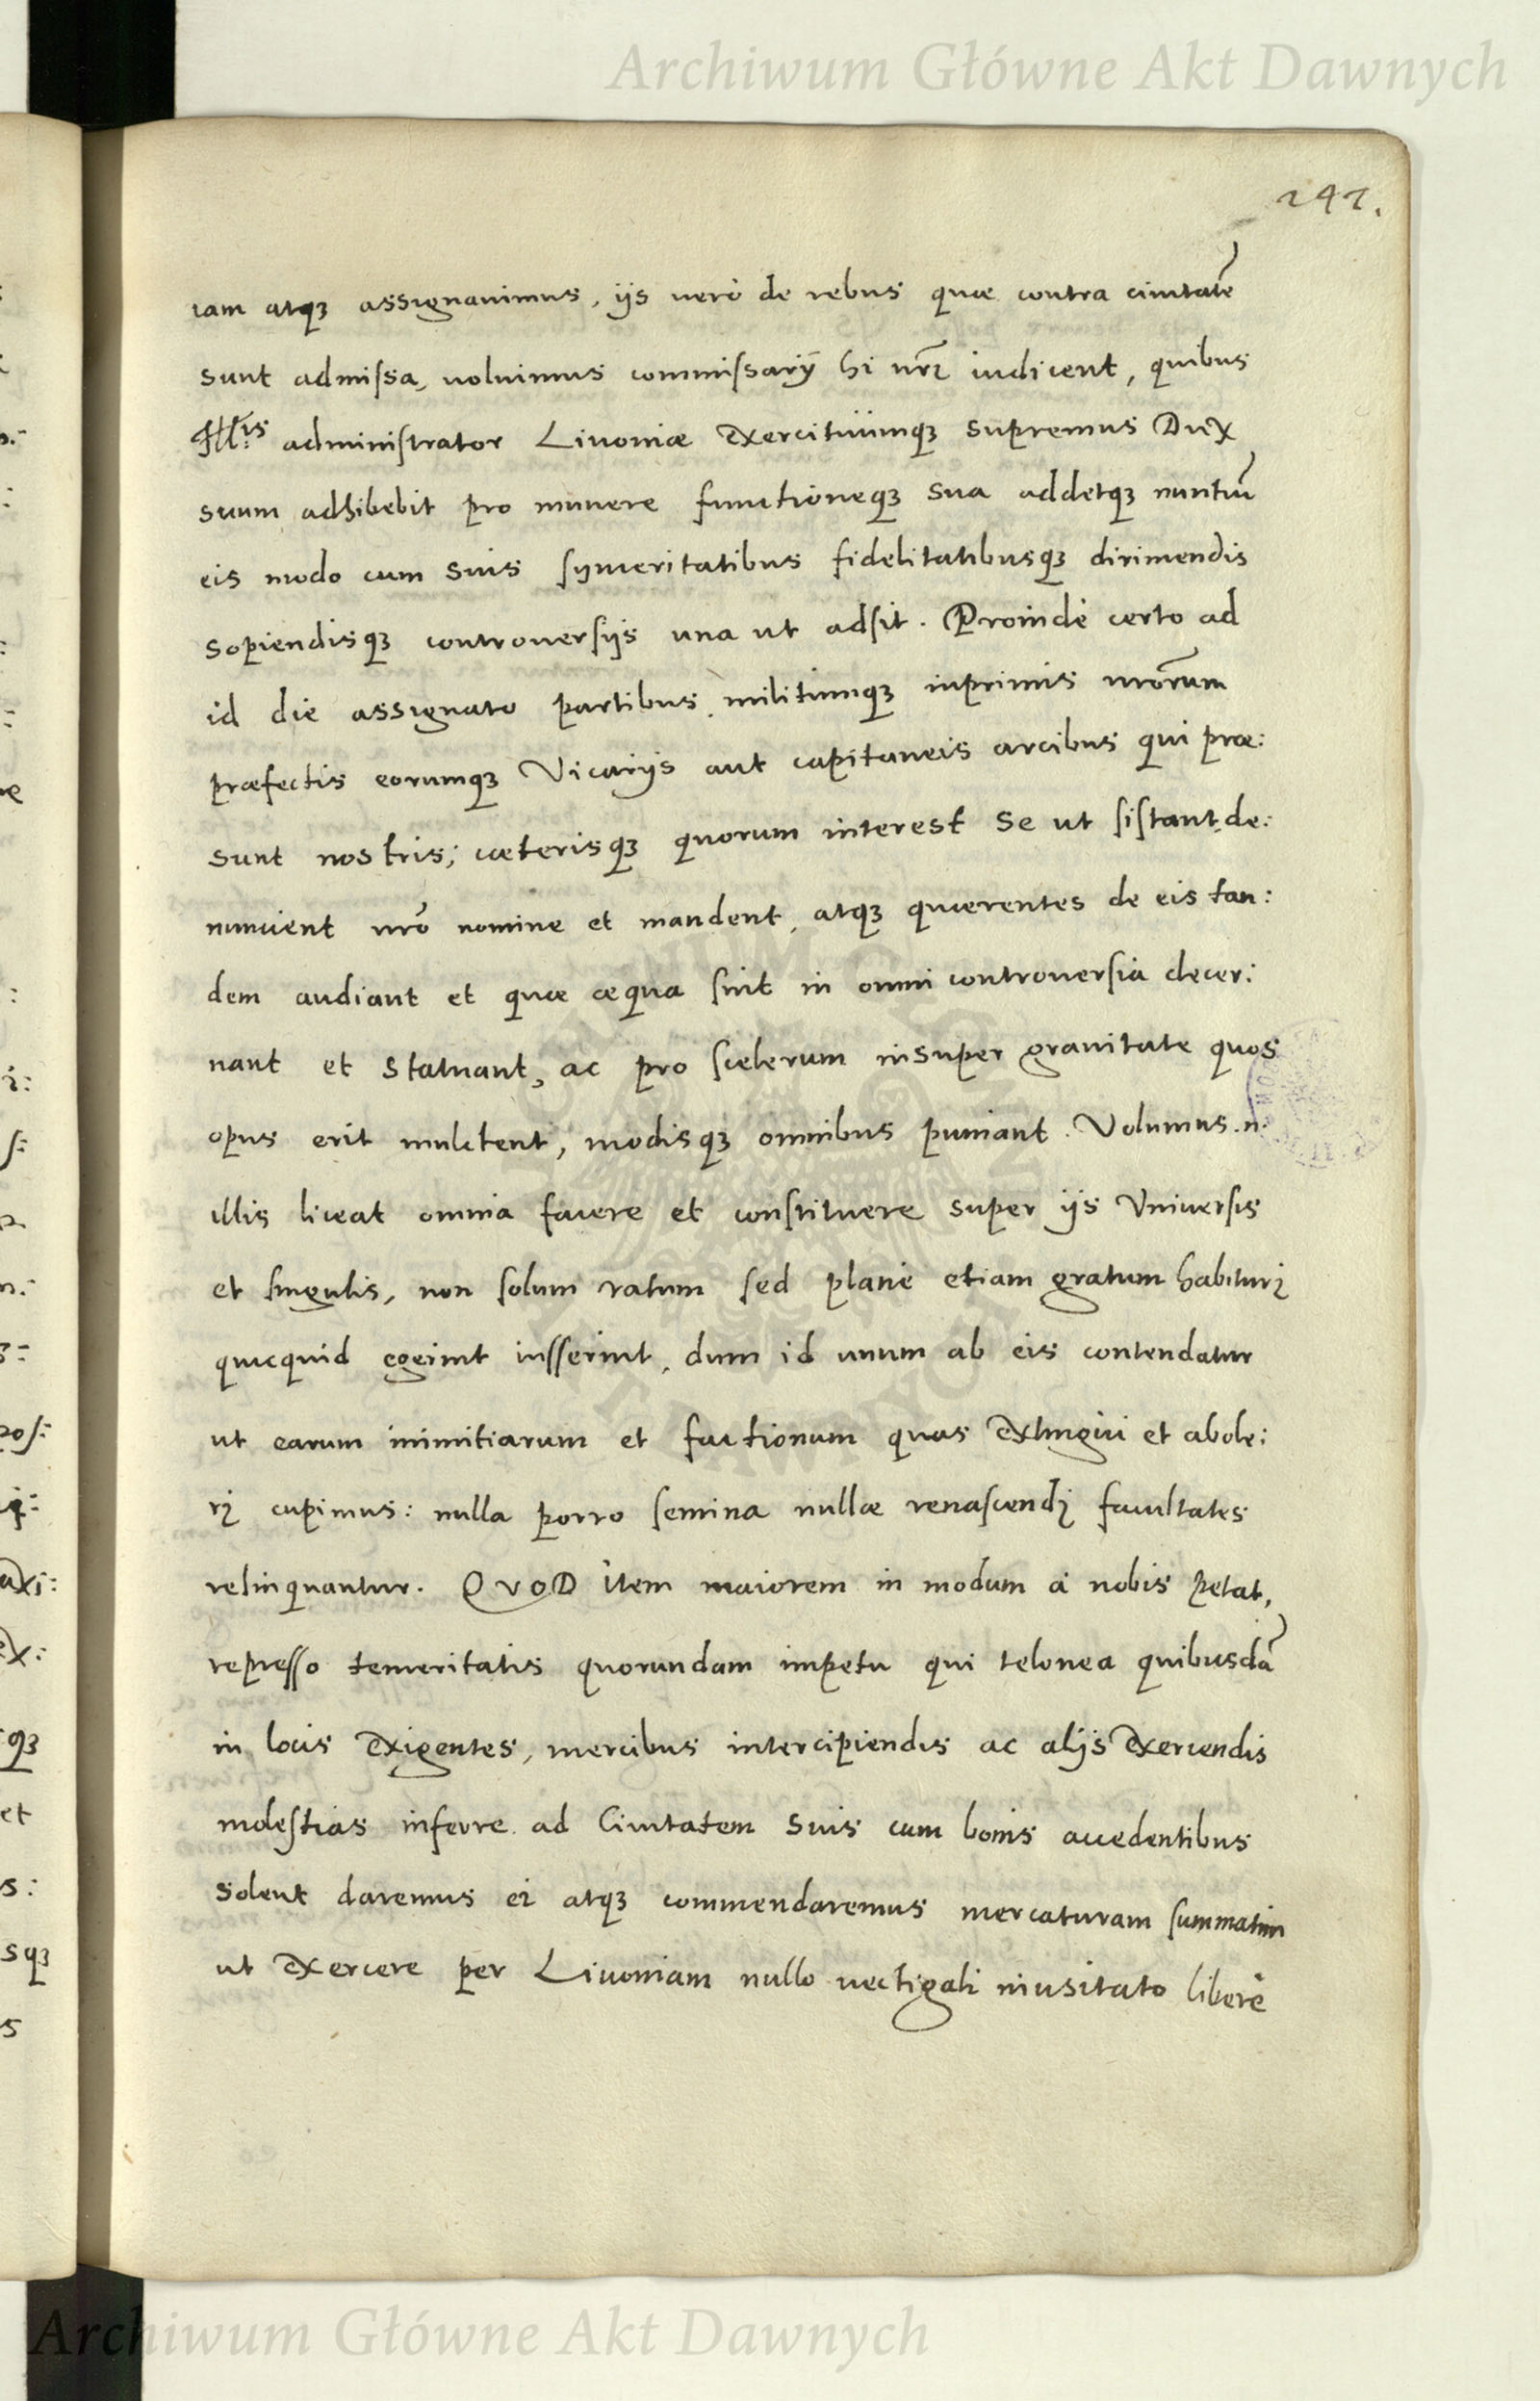 Archiwum Główne Akt Dawnych
242.
iam atqꝫ assignauimus, ijs uerò de rebus quæ contra ciuitatē
sunt admissa, uoluimus commissarÿ hi nr̃i iudicent, quibus
Ill:ris administrator Liuoniæ Exercituúmqꝫ supremus Dux
suum adhibebit pro munere functioneqꝫ sua addetqꝫ nuntiū
eis modo cum suis synceritatibus fidelitatibusqꝫ dirimendis
sopiendisqꝫ controuersijs una ut adsit. Proindè certo ad
id die assignato partibus, militúmqꝫ inprimis nrõrum
præfectis eorumqꝫ Vicarijs aut capitaneis arcibus qui præ:
sunt nostris; cæterisqꝫ quorum interest se ut sistant, de:
nuncient nrõ nomine et mandent, atqꝫ quærentes de eis tan:
dem audiant et quæ æqua sint in omni controuersia decer:
nant et statuant, ac pro scelerum insuper grauitate quos
opus erit mulctent, modisqꝫ omnibus puniant. Volumus .n.
illis liceat omnia facere et constituere super ijs Vniuersis
et singulis, non solum ratum sed planè etiam gratum habituri
quicquid egerint iusserint, dum id unum ab eis contendatur
ut earum inimicitiarum et factionum quas Extingui et abole:
ri cupimus: nulla porro semina nullæ renascendi facultates
relinquantur. QVOD item maiorem in modum à nobis petat,
represso temeritatis quorundam impetu qui telonea quibusdā
in locis Exigentes, mercibus intercipiendis ac alijs Exercendis
molestias inferre ad Ciuitatem suis cum bonis accedentibus
solent daremus ei atqꝫ commendaremus mercaturam summatim
ut Exercere per Liuoniam nullo uectigali inusitato liberè
Archiwum Główne Akt Dawnych